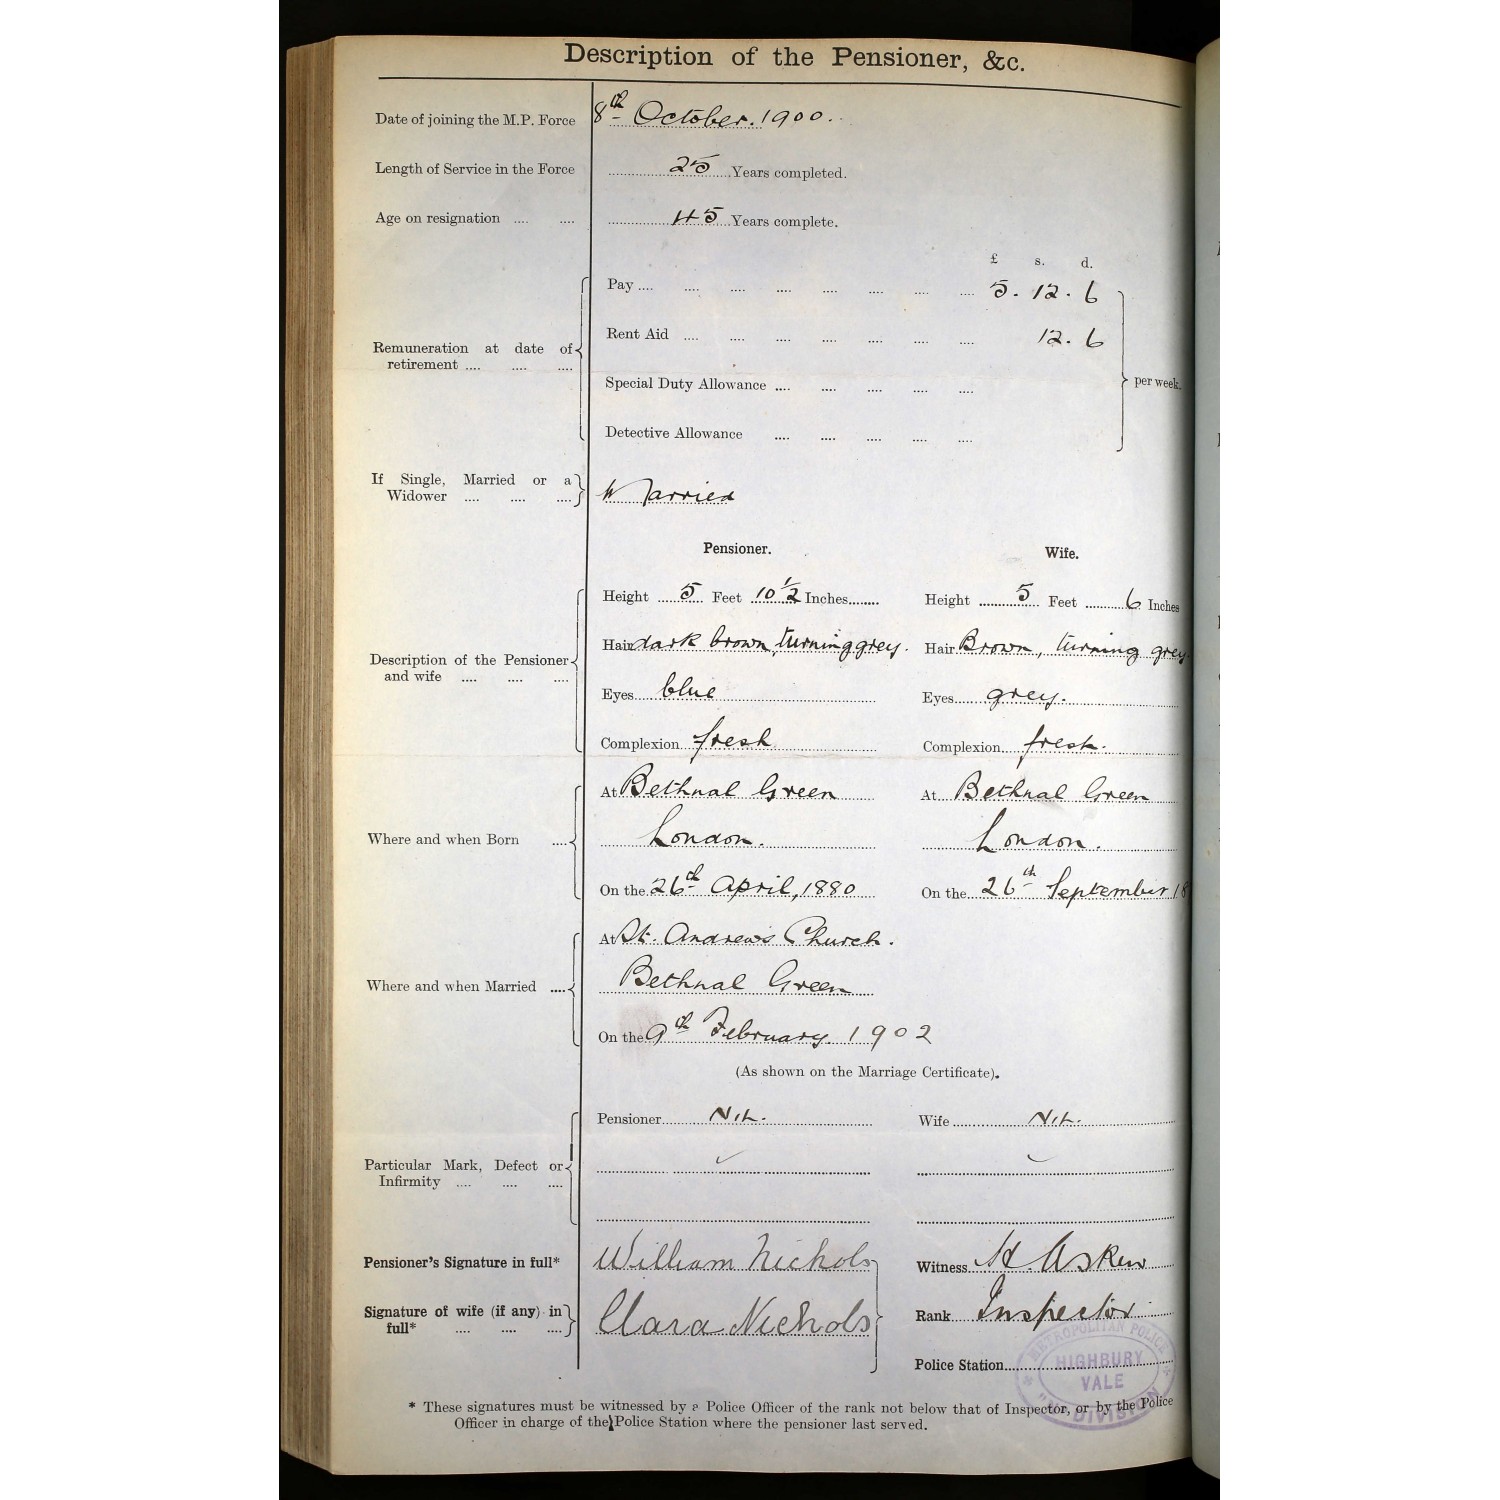 Description of the Pensioner, &c.
Date of joining the M.P. Force 8th October. 1900.
Length of Service in the Force 25 Years completed.
Age on resignation .... .... 45 Years complete.
£ s. d.
Pay .... .... .... .... .... .... .... .... 5. 12. 6
Rent Aid .... .... .... .... .... .... .... 12. 6
Remuneration at date of
retirement .... .... ....
Special Duty Allowance .... .... .... .... ....
per week.
Detective Allowance .... .... .... .... ....
If Single, Married or a
Widower .... .... .... Married
Pensioner. Wife.
Height 5 Feet 10 1/2 Inches Height 5 Feet 6 Inches
Hair dark brown, turning grey. Hair Brown, turning grey
Description of the Pensioner
and wife .... .... ....
Eyes blue Eyes grey.
Complexion fresh Complexion fresh.
At Bethnal Green At Bethnal Green
Where and when Born .... London. London.
On the 26th April, 1880 On the 26th September 18
At St. Andrew's Church.
Where and when Married .... Bethnal Green
On the 9th February. 1902
(As shown on the Marriage Certificate).
Pensioner Nil. Wife Nil.
Particular Mark, Defect or
Infirmity .... .... ....
Pensioner's Signature in full* William Nichols Witness H. Askew
Signature of wife (if any) in
full* .... .... .... Clara Nichols Rank Inspector
Police Station
METROPOLITAN POLICE
HIGHBURY
VALE
DIVISION
* These signatures must be witnessed by a Police Officer of the rank not below that of Inspector, or by the Police
Officer in charge of the Police Station where the pensioner last served.